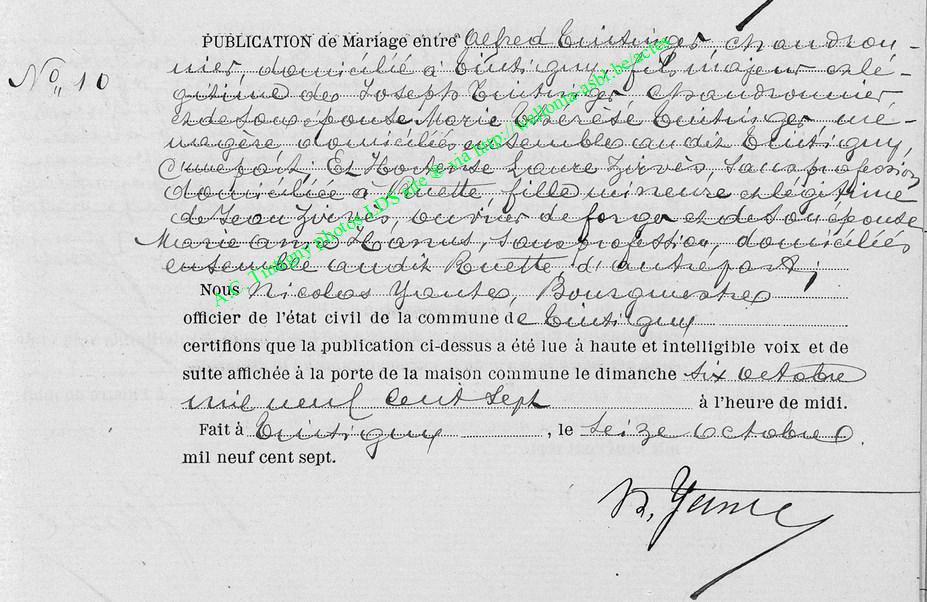 PUBLICATION de Mariage entre Alfred Tintinger chaudron-
No 10
nier, domicilié à Tintigny, fils majeur et lé-
gitime de Joseph Tintinger chaudronnier
et de son épouse Marie Thérèse Tintinger mé-
nagère domiciliés ensemble audit Tintigny,
d'une part; Et Hortense Laure Zirvès, sans profession
domiciliée à Ruette, fille mineure et légitime
de Jean Zirvès, ouvrier de forges et de son épouse
Marie anne Hanus, sans profession, domiciliés
ensemble audit Ruette d'autre part;
Nous Nicolas Yante, Bourgmestre
officier de l'état civil de la commune de Tintigny
certifions que la publication ci-dessus a été lue à haute et intelligible voix et de
suite affichée à la porte de la maison commune le dimanche six octobre
mil neuf cent sept à l'heure de midi.
Fait à Tintigny, le seize octobre
mil neuf cent sept.
N. Yante
A.E. Tintigny photos LDS site & via http://wallonia-asbl.be/actes